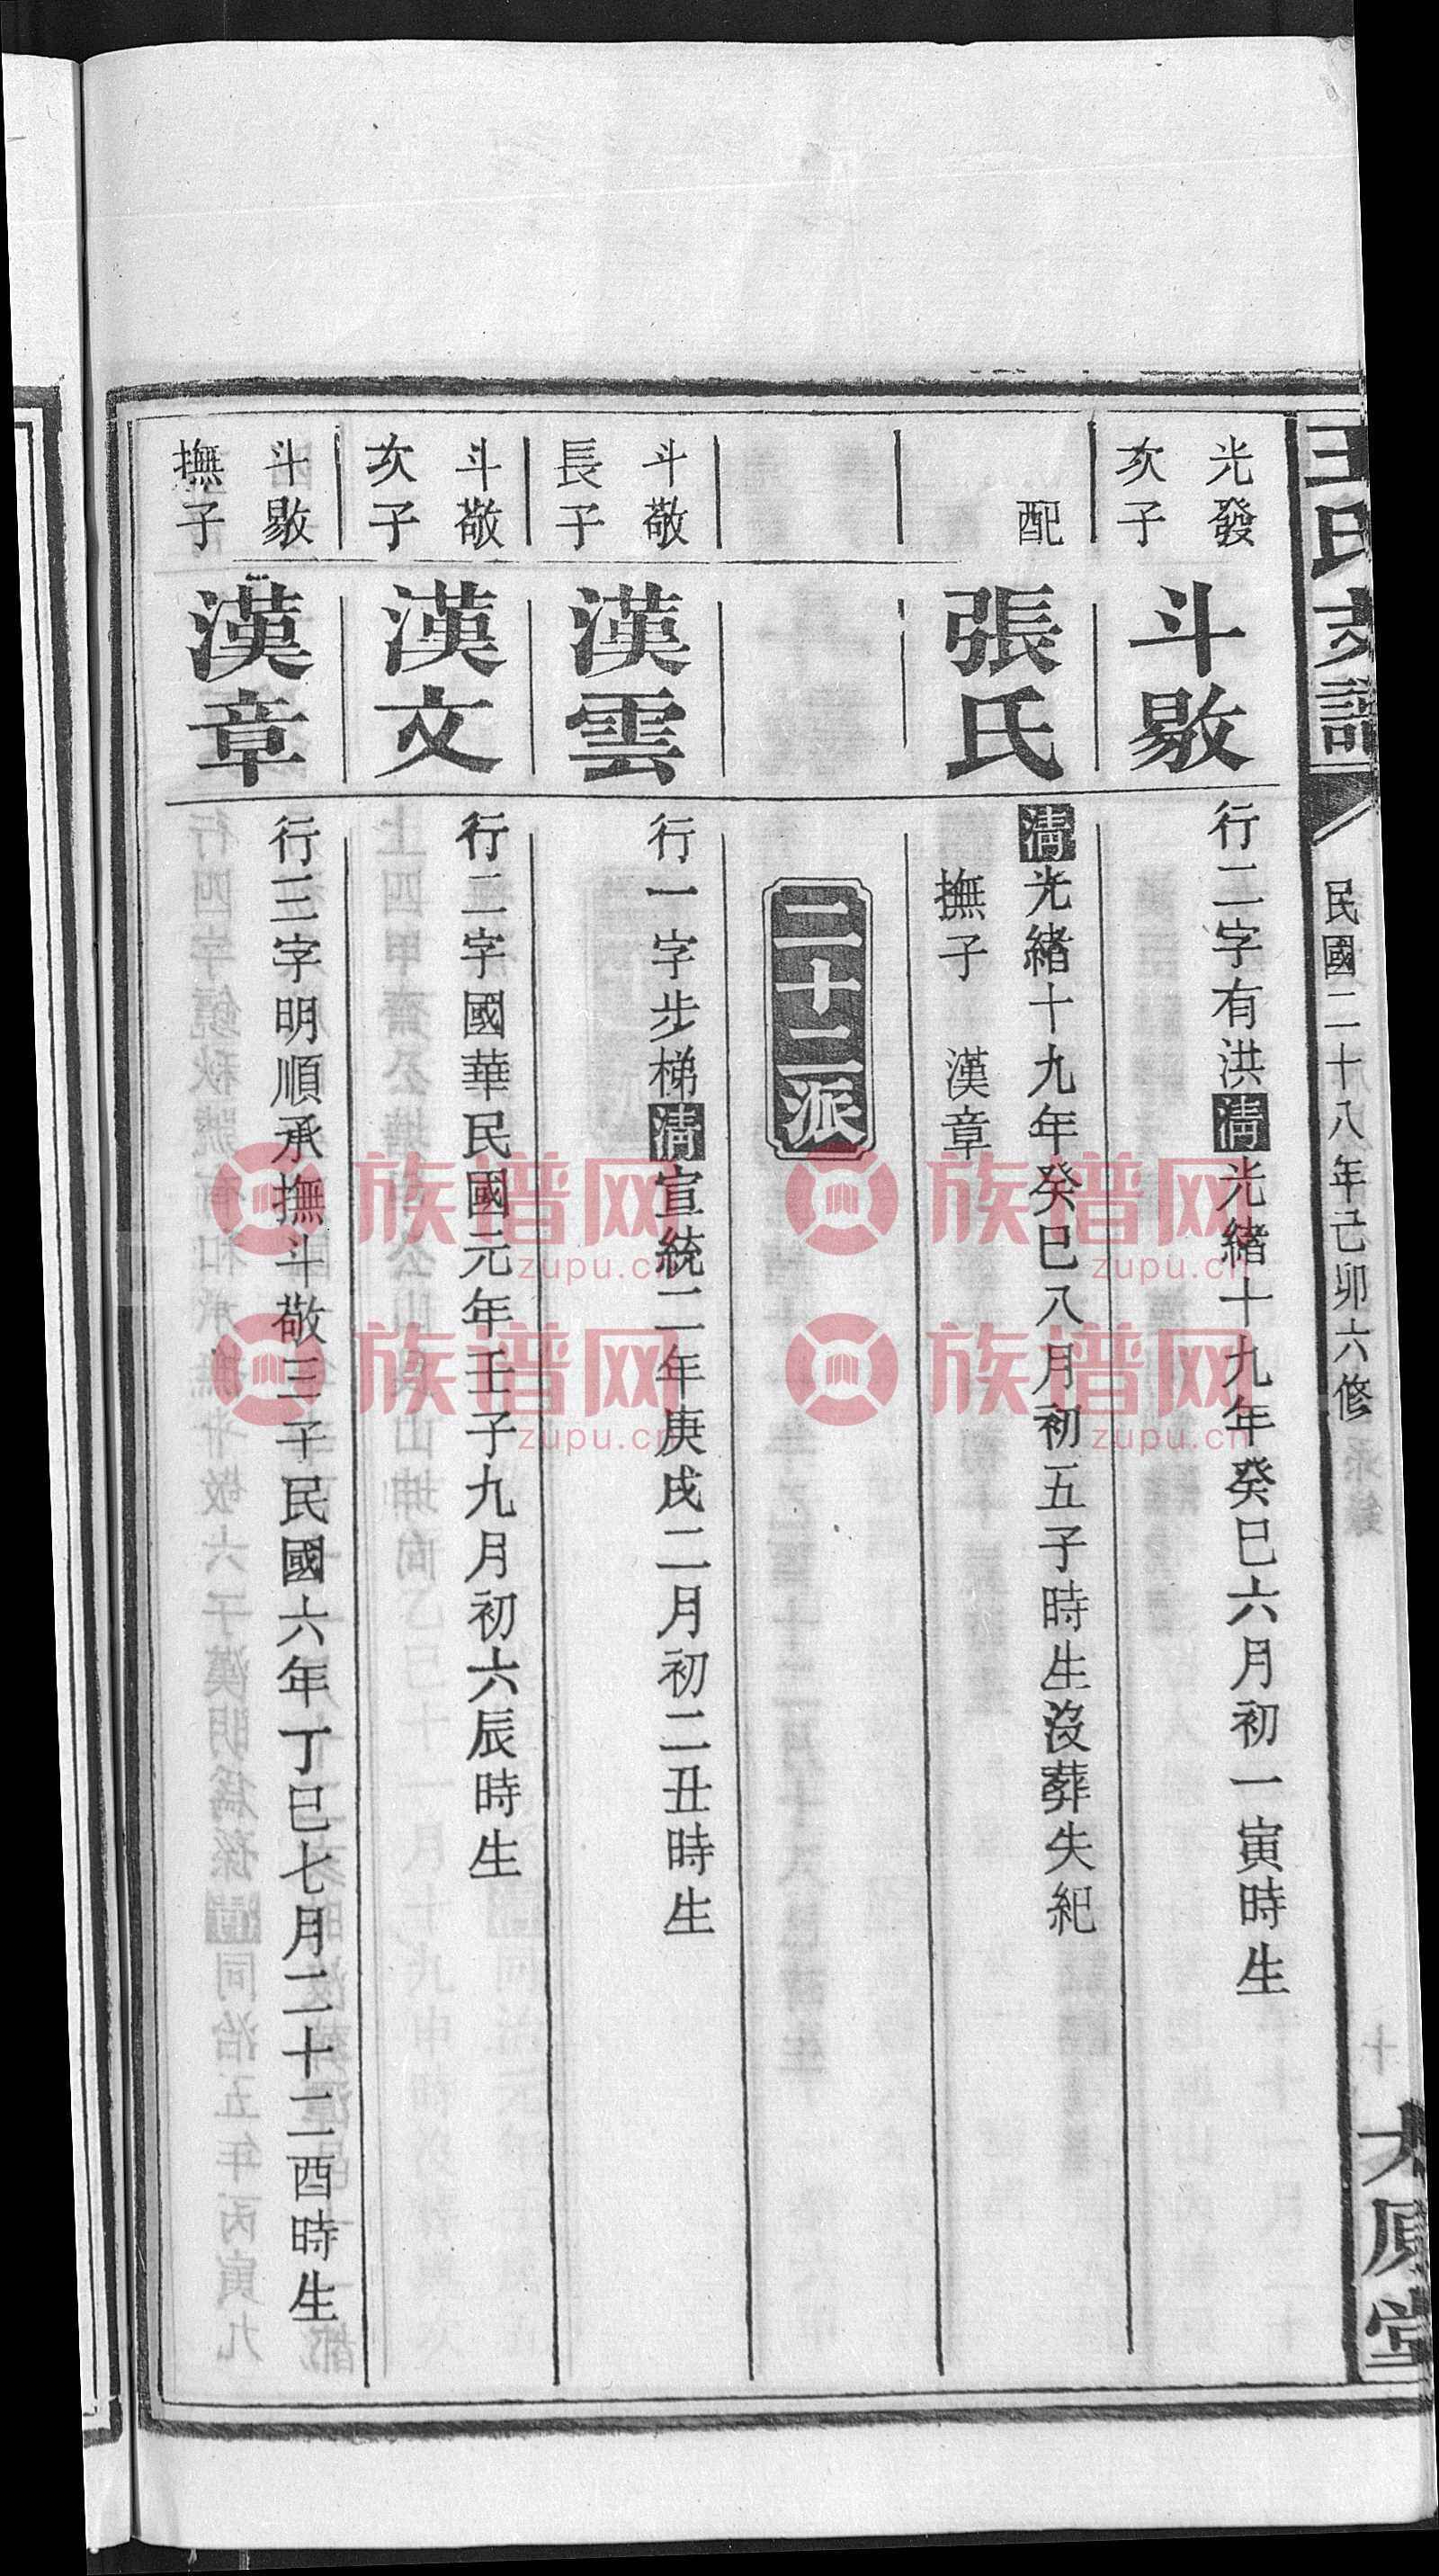 王氏支譜
民國二十八年己卯六修
太原堂
光發
次子
斗敭
行二字有洪清光緒十九年癸巳六月初一寅時生
配
張氏
清光緒十九年癸巳八月初五子時生沒葬失紀
撫子 漢章
二十二派
斗敬
長子
漢雲
行一字步梯清宣統二年庚戌二月初二丑時生
斗敬
次子
漢文
行二字國華民國元年壬子九月初六辰時生
斗敭
撫子
漢章
行三字明順承撫斗敬三子民國六年丁巳七月二十二酉時生
族谱网
zupu.cn
族谱网
zupu.cn
族谱网
zupu.cn
族谱网
zupu.cn